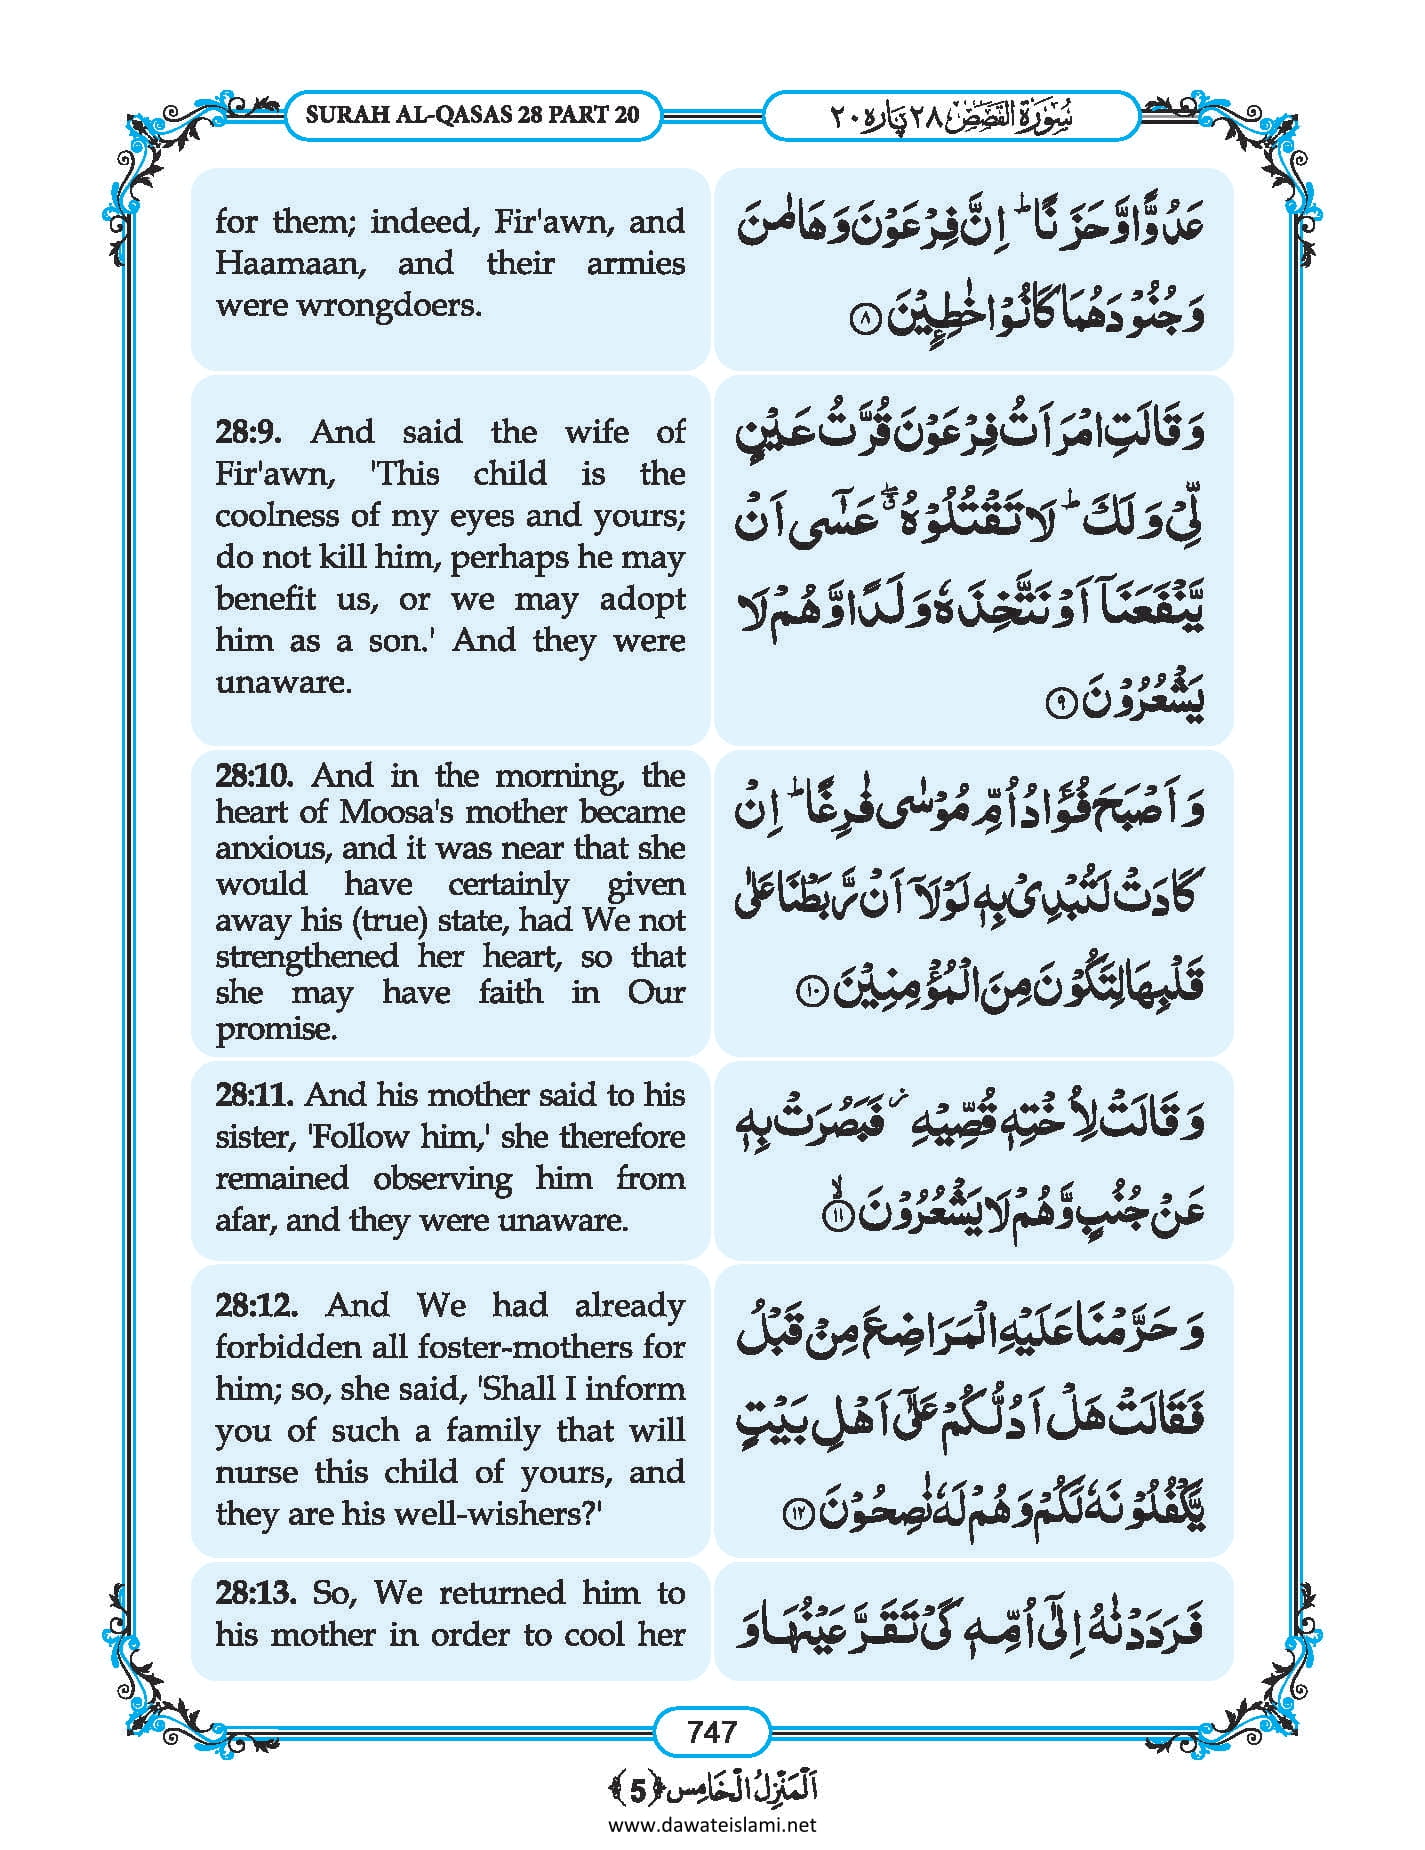 SURAH AL-QASAS 28 PART 20
سُوْرَةُ الْقَصَصِ ٢٨ پارہ ٢٠
for them; indeed, Fir'awn, and
Haamaan, and their armies
were wrongdoers.
عَدُوًّا وَّ حَزَنًا ؕ اِنَّ فِرْعَوْنَ وَ هَامٰنَ
وَ جُنُوْدَهُمَا كَانُوْا خٰطِـٕیْنَ ﴿۸﴾
28:9. And said the wife of
Fir'awn, 'This child is the
coolness of my eyes and yours;
do not kill him, perhaps he may
benefit us, or we may adopt
him as a son.' And they were
unaware.
وَ قَالَتِ امْرَاَتُ فِرْعَوْنَ قُرَّتُ عَیْنٍ
لِّیْ وَ لَكَ ؕ لَا تَقْتُلُوْهُ ۖۗ عَسٰۤی اَنْ
یَّنْفَعَنَاۤ اَوْ نَتَّخِذَهٗ وَلَدًا وَّ هُمْ لَا
یَشْعُرُوْنَ ﴿۹﴾
28:10. And in the morning, the
heart of Moosa's mother became
anxious, and it was near that she
would have certainly given
away his (true) state, had We not
strengthened her heart, so that
she may have faith in Our
promise.
وَ اَصْبَحَ فُؤَادُ اُمِّ مُوْسٰی فٰرِغًا ؕ اِنْ
كَادَتْ لَتُبْدِیْ بِهٖ لَوْلَاۤ اَنْ رَّبَطْنَا عَلٰی
قَلْبِهَا لِتَكُوْنَ مِنَ الْمُؤْمِنِیْنَ ﴿۱۰﴾
28:11. And his mother said to his
sister, 'Follow him,' she therefore
remained observing him from
afar, and they were unaware.
وَ قَالَتْ لِاُخْتِهٖ قُصِّیْهِ ؗ فَبَصُرَتْ بِهٖ
عَنْ جُنُبٍ وَّ هُمْ لَا یَشْعُرُوْنَ ﴿ۙ۱۱﴾
28:12. And We had already
forbidden all foster-mothers for
him; so, she said, 'Shall I inform
you of such a family that will
nurse this child of yours, and
they are his well-wishers?'
وَ حَرَّمْنَا عَلَیْهِ الْمَرَاضِعَ مِنْ قَبْلُ
فَقَالَتْ هَلْ اَدُلُّكُمْ عَلٰۤی اَهْلِ بَیْتٍ
یَّكْفُلُوْنَهٗ لَكُمْ وَ هُمْ لَهٗ نٰصِحُوْنَ ﴿۱۲﴾
28:13. So, We returned him to
his mother in order to cool her
فَرَدَدْنٰهُ اِلٰۤی اُمِّهٖ كَیْ تَقَرَّ عَیْنُهَا وَ
747
اَلْمَنْزِلُ الْخَامِس ﴿5﴾
www.dawateislami.net